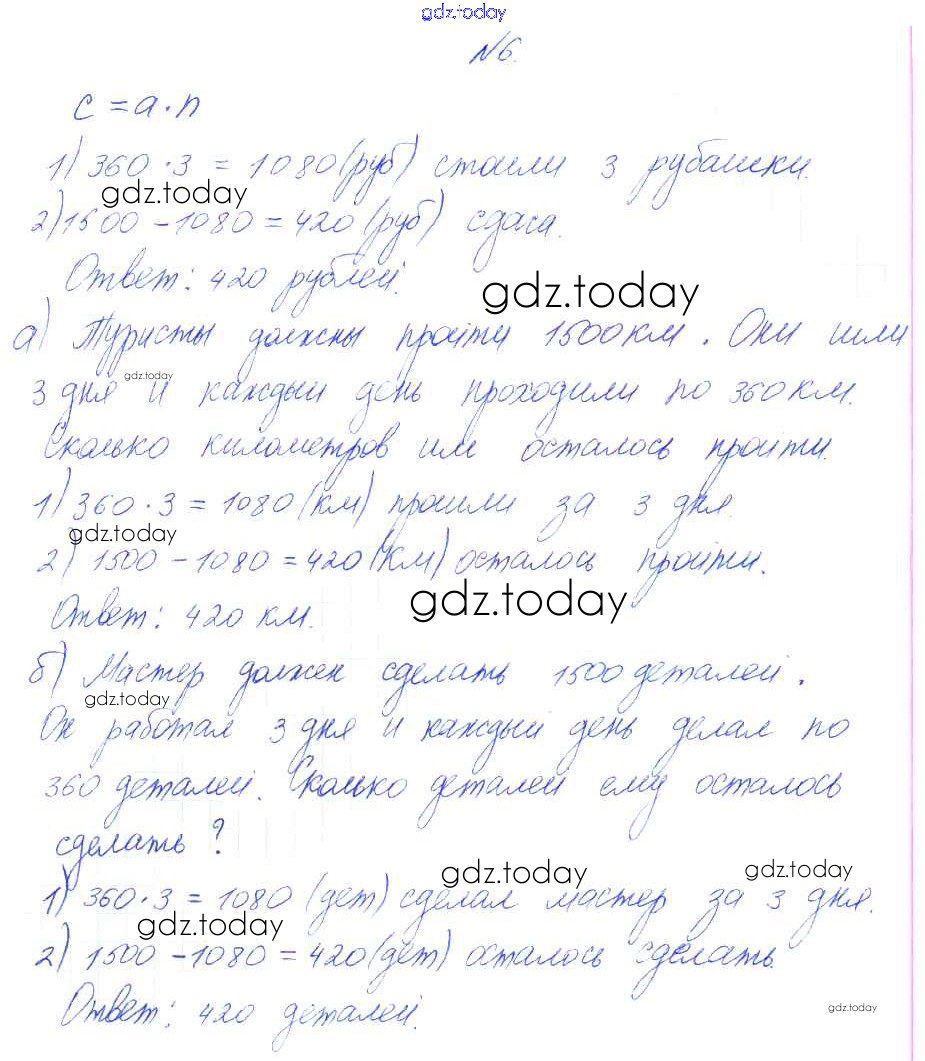 gdz.today
№6.
c = a · n
1) 360 · 3 = 1080 (руб) стоили 3 рубашки.
gdz.today
2) 1500 - 1080 = 420 (руб) сдача.
Ответ: 420 рублей.
gdz.today
а) Туристы должны пройти 1500 км. Они шли
gdz.today
3 дня и каждый день проходили по 360 км.
Сколько километров им осталось пройти.
1) 360 · 3 = 1080 (км) прошли за 3 дня.
gdz.today
2) 1500 - 1080 = 420 (км) осталось пройти.
gdz.today
Ответ: 420 км.
б) Мастер должен сделать 1500 деталей.
gdz.today
Он работал 3 дня и каждый день делал по
360 деталей. Сколько деталей ему осталось
сделать?
gdz.today
gdz.today
1) 360 · 3 = 1080 (дет) сделал мастер за 3 дня.
gdz.today
2) 1500 - 1080 = 420 (дет) осталось сделать.
Ответ: 420 деталей.
gdz.today